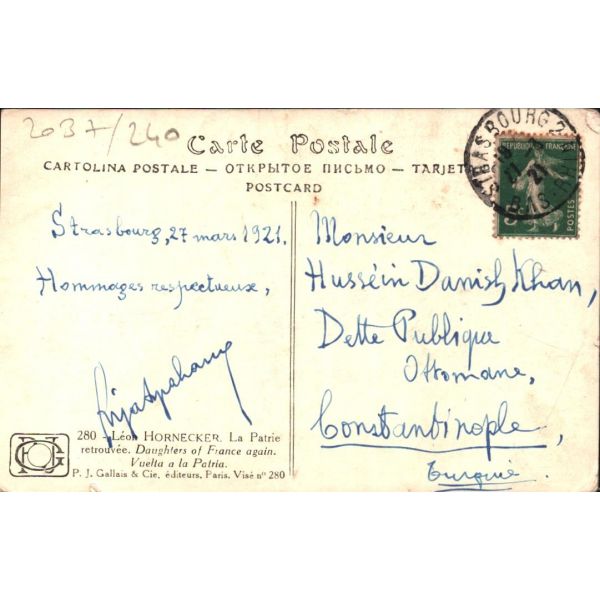 2037/240
Carte Postale
CARTOLINA POSTALE — ОТКРЫТОЕ ПИСЬМО — TARJET
POSTCARD
Strasbourg, 27 mars 1921.
Hommages respectueux,
280 - Léon HORNECKER. La Patrie
retrouvée. Daughters of France again.
Vuelta a la Patria.
P. J. Gallais & Cie, éditeurs, Paris. Visé nº 280
STRASBOURG 2
21
REPUBLIQUE FRANÇAISE
POSTES
Monsieur
Husséin Danish Khan,
Dette Publique
Ottomane,
Constantinople,
Turquie.